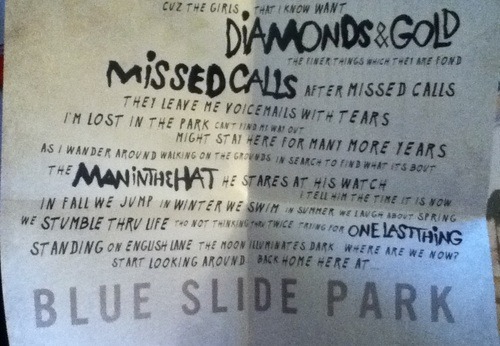 CUZ THE GIRLS THAT I KNOW WANT
DIAMONDS & GOLD
THE FINER THINGS WHICH THEY ARE FOND
MISSED CALLS AFTER MISSED CALLS
THEY LEAVE ME VOICEMAILS WITH TEARS
I'M LOST IN THE PARK CAN'T FIND MY WAY OUT
MIGHT STAY HERE FOR MANY MORE YEARS
AS I WANDER AROUND WALKING ON THE GROUNDS IN SEARCH TO FIND WHAT IT'S BOUT
THE MAN IN THE HAT HE STARES AT HIS WATCH
I TELL HIM THE TIME IT IS NOW
IN FALL WE JUMP IN WINTER WE SWIM IN SUMMER WE LAUGH ABOUT SPRING
WE STUMBLE THRU LIFE THO NOT THINKING THRU TWICE TRYING FOR ONE LAST THING
STANDING ON ENGLISH LANE THE MOON ILLUMINATES DARK WHERE ARE WE NOW?
START LOOKING AROUND BACK HOME HERE AT...
BLUE SLIDE PARK